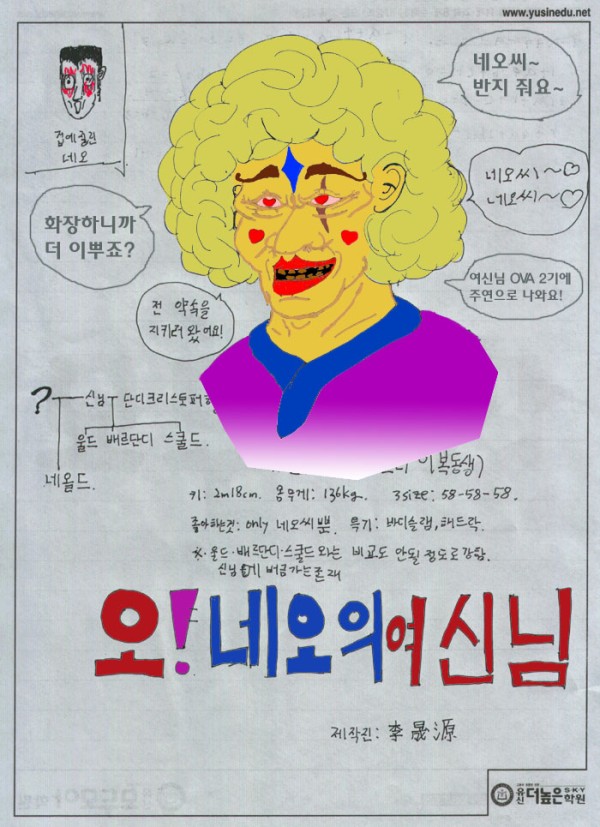 www.yusinedu.net
겁에질린
네오
네오씨~
반지 줘요~
네오씨~♡
네오씨~♡
화장하니까
더 이뿌죠?
여신님 OVA 2기에
주연으로 나와요!
전 약속을
지키러 왔어요!
? 신님 단디크리스토퍼
울드 베르단디 스쿨드.
네올드.
이복동생)
키: 2m18cm. 몸무게: 136kg. 3size: 58-58-58.
좋아하는것: only 네오씨뿐. 특기: 바디슬램, 헤드락.
※·울드·베르단디·스쿨드와는 비교도 안될 정도로강함.
신님에게 버금가는존재
오!네오의여신님
제작진: 李晟源
유신 더높은SKY학원